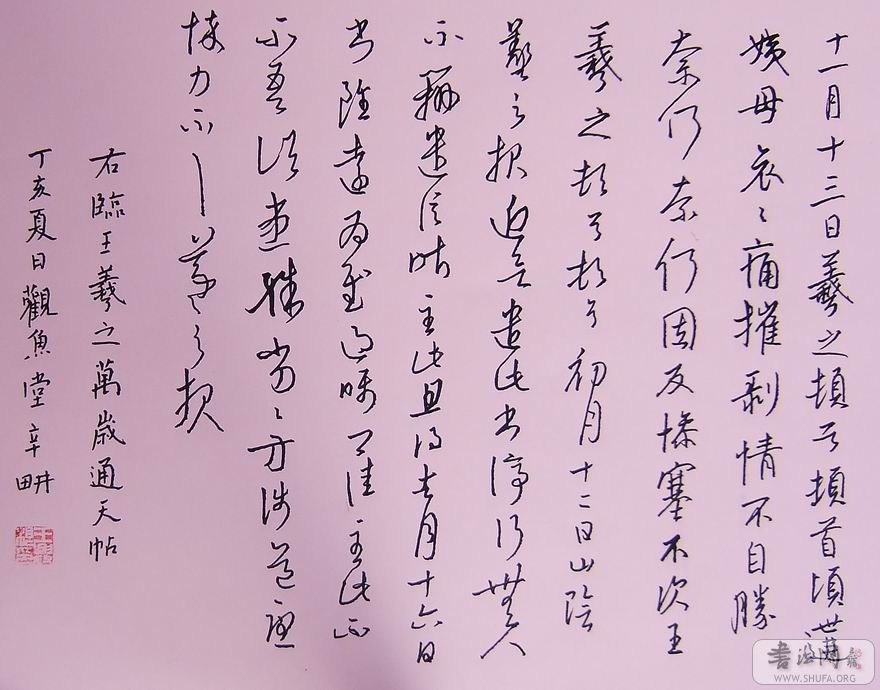 十一月十三日羲之頓首頓首頃遘
姨母哀哀痛摧剥情不自勝
奈何奈何因反惨塞不次王
羲之頓首頓首初月十二日山陰
羲之報近欲遣此書停行無人
不辦遣信昨至此且得去月十六日
書雖遠為慰過嘱卿佳不至此正
不吾諸患殊劣劣方涉道憂
悴力不一一羲之報
右臨王羲之萬歲通天帖
丁亥夏日觀魚堂辛畊
書法網
WWW.SHUFA.ORG